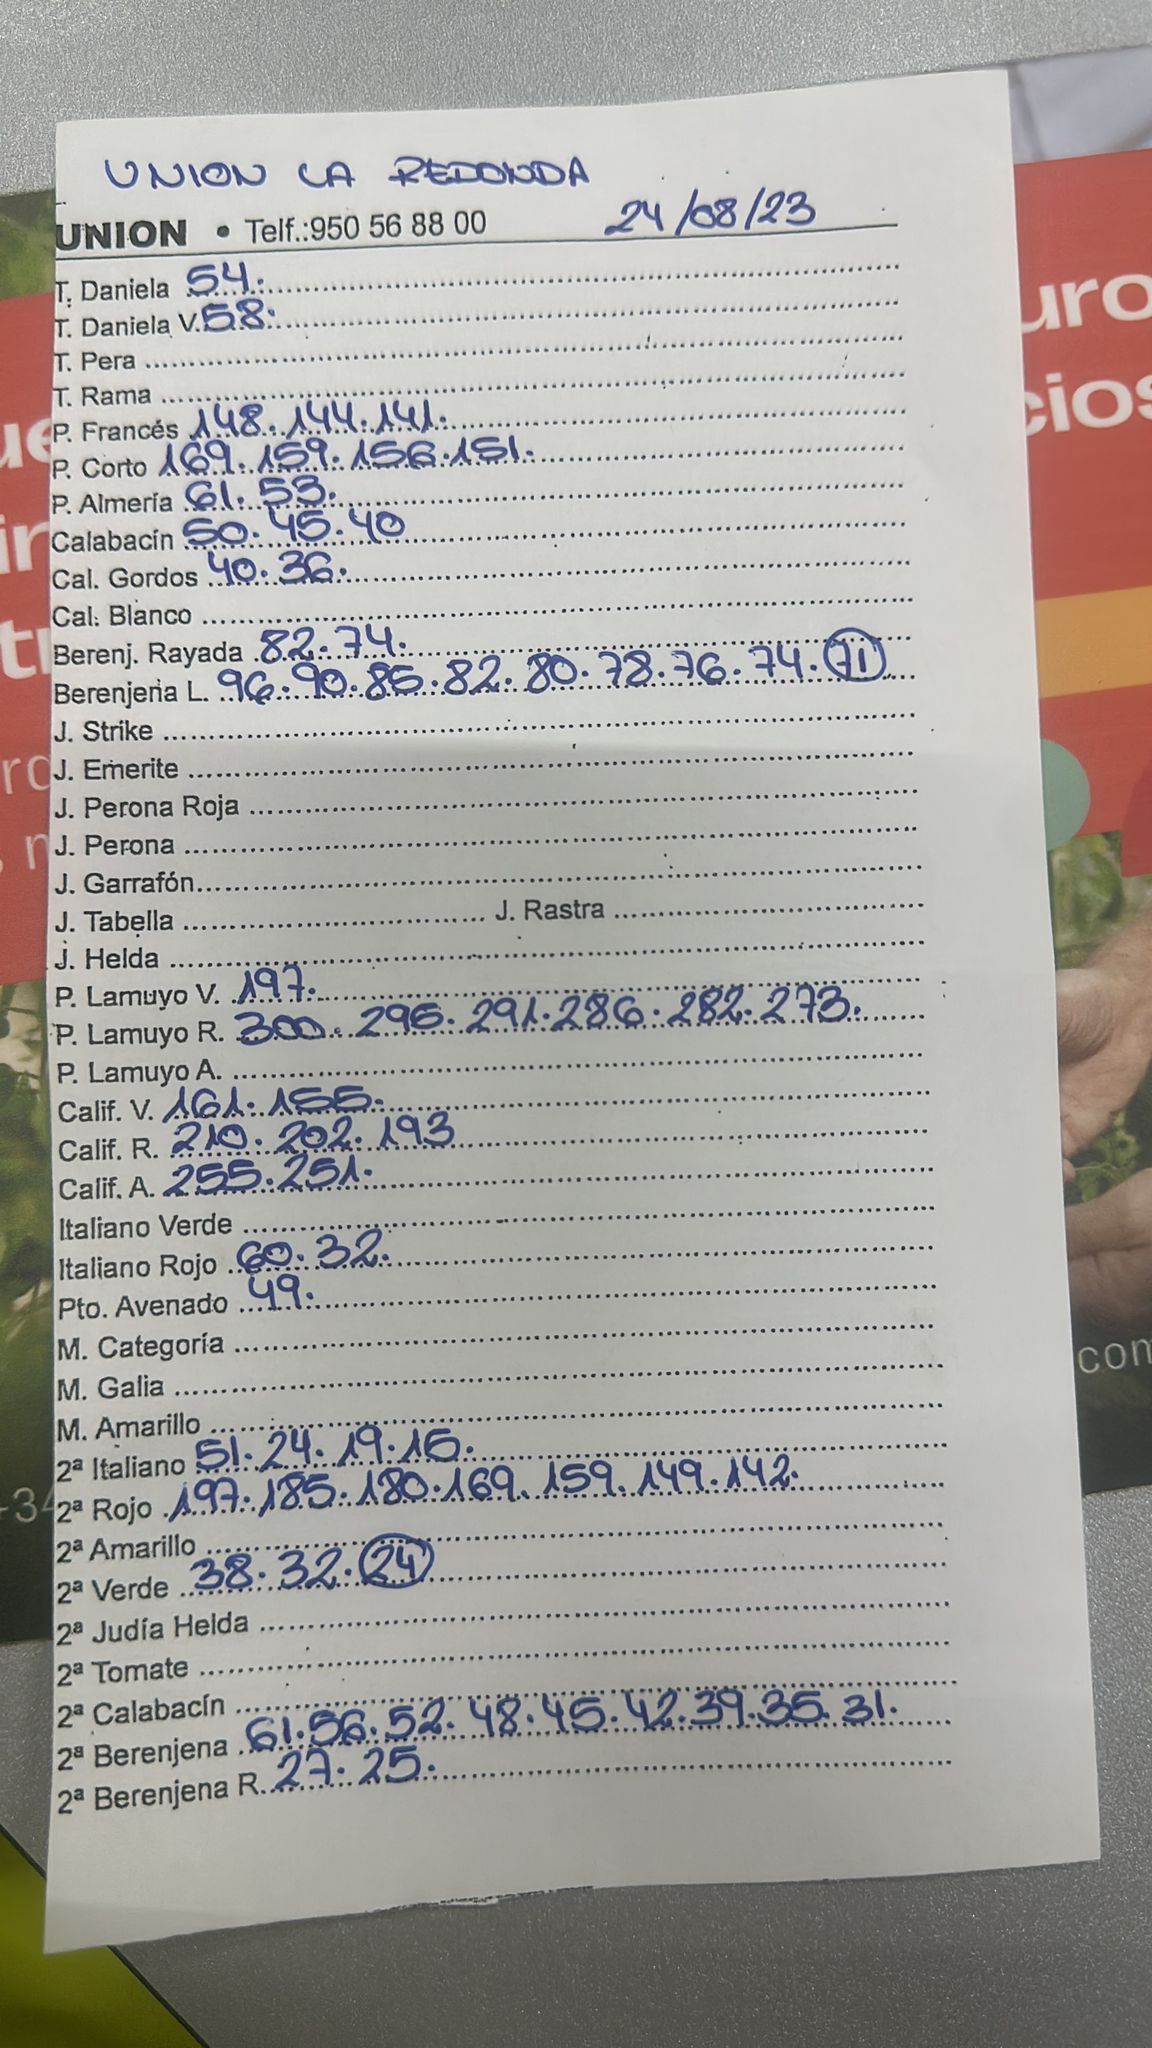 UNION LA REDONDA
UNION • Telf.:950 56 88 00 24/08/23
T. Daniela 54.
T. Daniela V. 58.
T. Pera
T. Rama
P. Francés 148. 144. 141.
P. Corto 169. 159. 156. 151.
P. Almería 61. 53.
Calabacín 50. 45. 40
Cal. Gordos 40. 36.
Cal. Blanco
Berenj. Rayada 82. 74.
Berenjena L. 96. 90. 85. 82. 80. 78. 76. 74. 71
J. Strike
J. Emerite
J. Perona Roja
J. Perona
J. Garrafón
J. Tabella J. Rastra
J. Helda
P. Lamuyo V. 197.
P. Lamuyo R. 300. 295. 291. 286. 282. 273.
P. Lamuyo A.
Calif. V. 161. 155.
Calif. R. 210. 202. 193
Calif. A. 255. 251.
Italiano Verde
Italiano Rojo 60. 32.
Pto. Avenado 49.
M. Categoría
M. Galia
M. Amarillo
2ª Italiano 51. 24. 19. 15.
2ª Rojo 197. 185. 180. 169. 159. 149. 142.
2ª Amarillo
2ª Verde 38. 32. 24
2ª Judía Helda
2ª Tomate
2ª Calabacín
2ª Berenjena 61. 56. 52. 48. 45. 42. 39. 35. 31.
2ª Berenjena R. 27. 25.